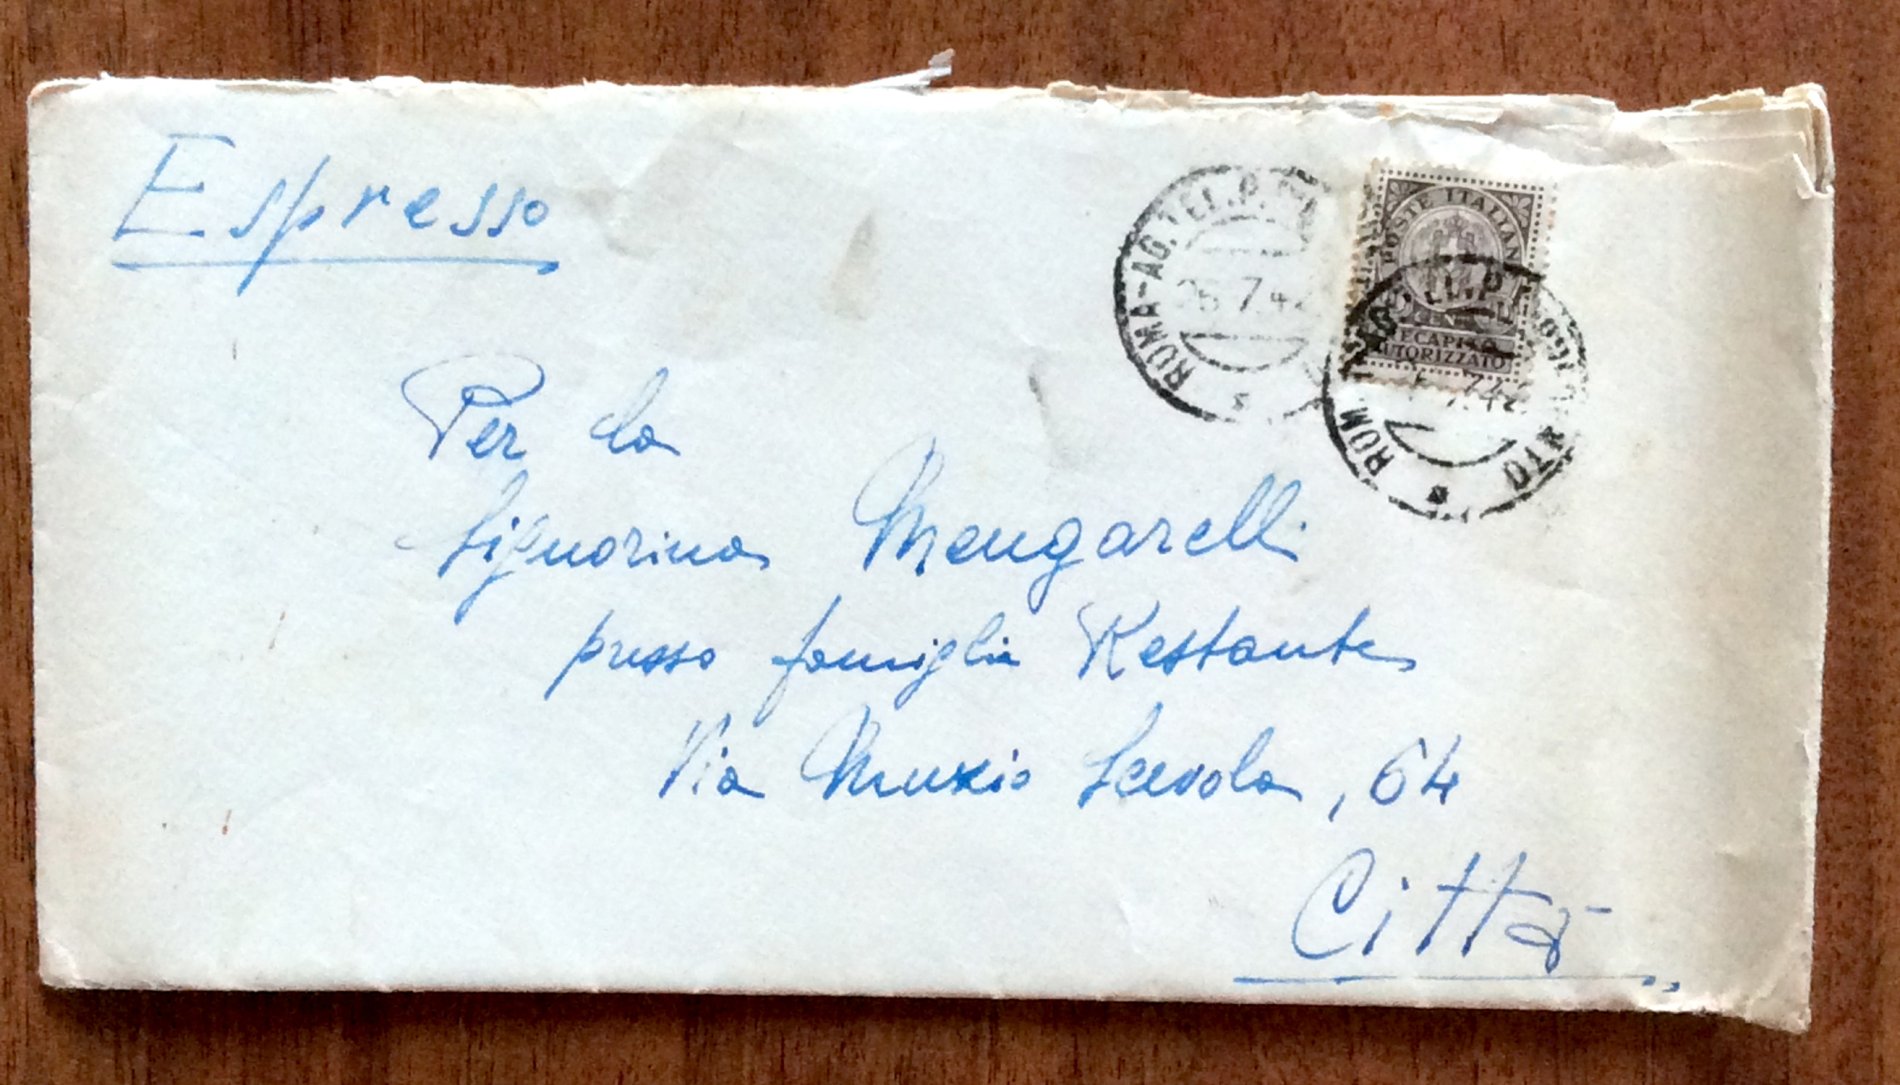 Espresso
ROMA-AG.TEL.P.
26.7.42
POSTE ITALIANE
RECAPITO
AUTORIZZATO
Per la
Signorina Mengarelli
presso famiglia Restante
Via Muzio Scevola, 64
Città